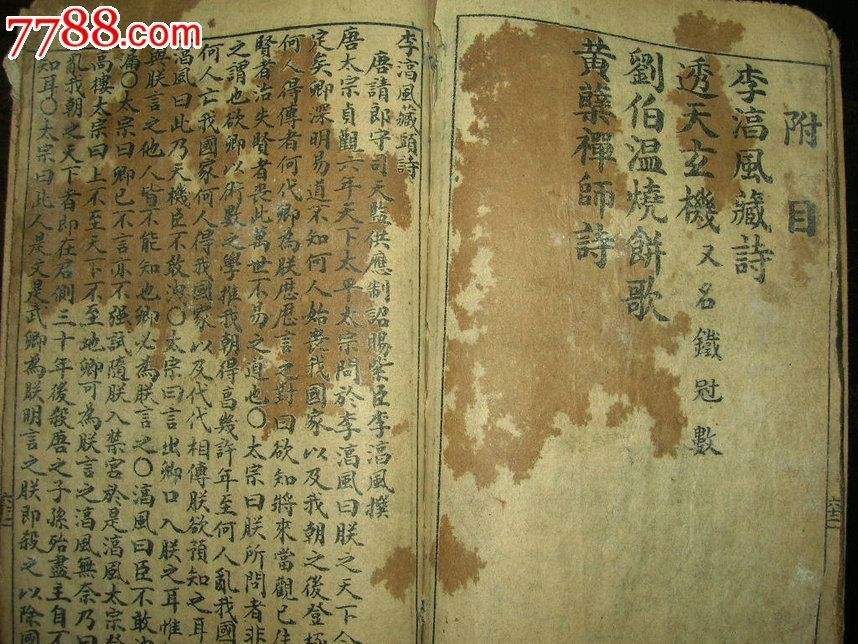 7788.com
附目
李湻風藏詩
透天玄機又名鐵冠數
劉伯温燒餅歌
黃蘗禪師詩
李湻風藏頭詩
唐請郎守司天監供應制詔賜紫臣李湻風撰
唐太宗貞觀六年天下太平太宗問於李湻風曰朕之天下今
定矣卿深明易道不知何人始喪我國家以及我朝之後登極
何人得傳者何代卿為朕歷歷言之對曰欲知將來當觀已往
賢者治失賢者喪此萬世不易之道也〇太宗曰朕所問者非
之謂也欲卿以術數之學推我朝得享幾許年至何人亂我國
何人亡我國家何人得我國家以及代代相傳朕欲預知之耳
湻風曰此乃天機臣不敢洩〇太宗曰言出卿口入朕之耳惟
無朕言之他人皆不能知也卿必為朕言之〇湻風曰臣不敢洩
漏〇太宗曰卿已不言亦不强試隨朕入禁宮於是湻風太宗登
高樓太宗曰上不至天下不至地卿可為朕言之湻風無奈乃曰
亂我朝之天下者即在君側三十年後殺唐之子孫殆盡主自不
知耳〇太宗曰此人是文是武卿為朕明言之朕即殺之以除國